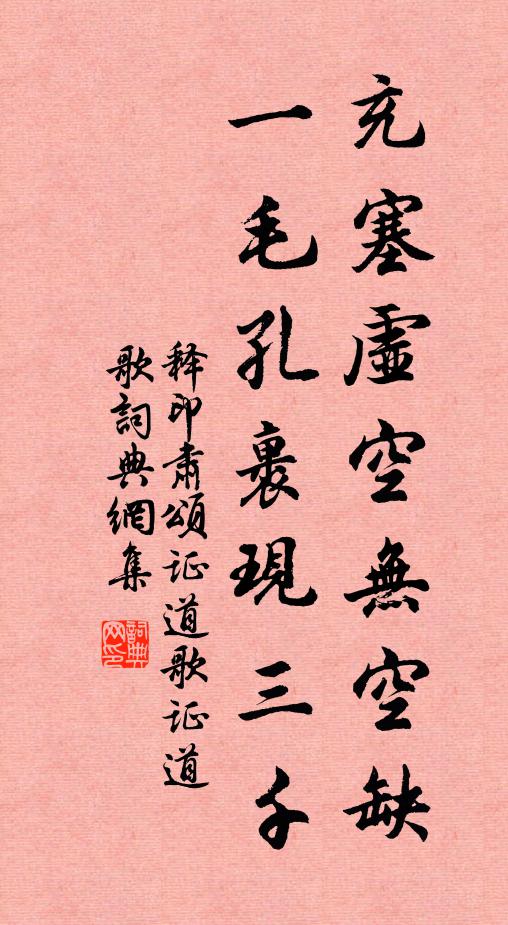 充塞虛空無空缺
一毛孔裹現三千
释印肅頌证道歌证道
歌詞典網集
詞典网印